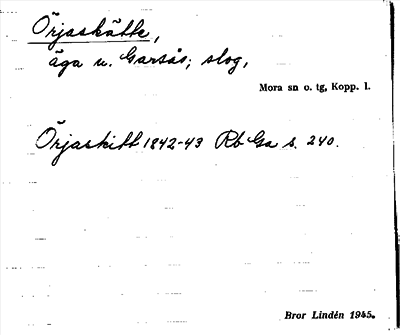 Örjaskätte,
äga u. Garsås; slog,
Mora sn o. tg, Kopp. l.
Örjaskitt 1842-43 Rb Ga s. 240.
Bror Lindén 1945.